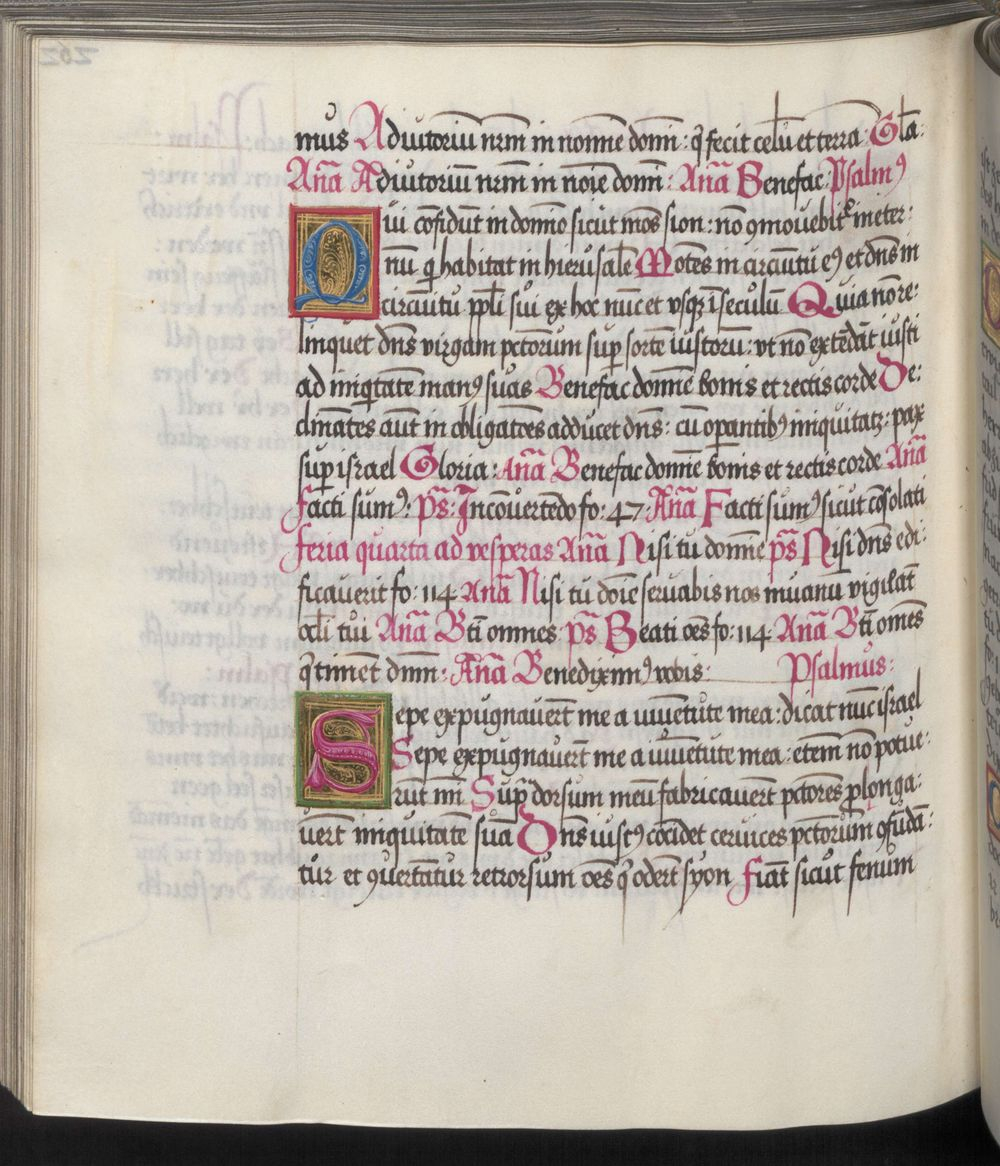 mus Adiutoriū nr̄m in nomīe domī: q̄ fecit celū et terrā: Gl̄a:
Anā Adiutoriū nr̄m in noīe domī: Anā Benefac: Psalmꝰ
Qui cōfidūt in domīo sicut mōs sion: nō ꝯmouebit᷑ in eter:
nū q̄ habitat in hierusalē Mōtes in circuitu eiꝰ et dn̄s in
circuitu pp̄li sui ex hoc nūc et vsqꝫ ī seculū Quia nō re:
linquet dn̄s virgam pctōrum sup̄ sortē iustorū: vt nō extēdāt iusti
ad iniq̄tatē manꝰ suas Benefac domīe bonis et rectis corde De:
clināntes aūt in obligatōes adducet dn̄s: cū oꝑantibꝰ iniquitatē: pax
sup̄ israel Gloria: Anā Benefac domīe bonis et rectis corde Anā
Facti sumꝰ: ps̄: In cōuertēdo fo: 47: Anā Facti sumꝰ sicut cōsolati
feria quarta ad vesperas Anā Nisi tu domīe ps̄ Nisi dn̄s edi:
ficauerit fo: 114 Anā Nisi tu doīe seruabis nos in uanū vigilāt
ocl̄i tui Anā Bt̄i omnes ps̄ Beati oēs fo: 114 Anā Bt̄i omēs
q̄ timēt dnm̄: Anā Benediximꝰ vobis: Psalmus:
Sepe expugnauer̄t me a iuuētute mea: dicat nūc israel
Sepe expugnauer̄t me a iuuētute mea: etem̄ nō potue:
rūt mī Sup̄ dorsum meū fabricauer̄t pctōres ꝓlonga:
uer̄t iniquitatē suā Dn̄s iustꝰ cōcidet ceruices pctōrum ꝯfūdā:
tur et ꝯuertātur retrorsum oēs q̄ oder̄t syon Fiāt sicut fenum